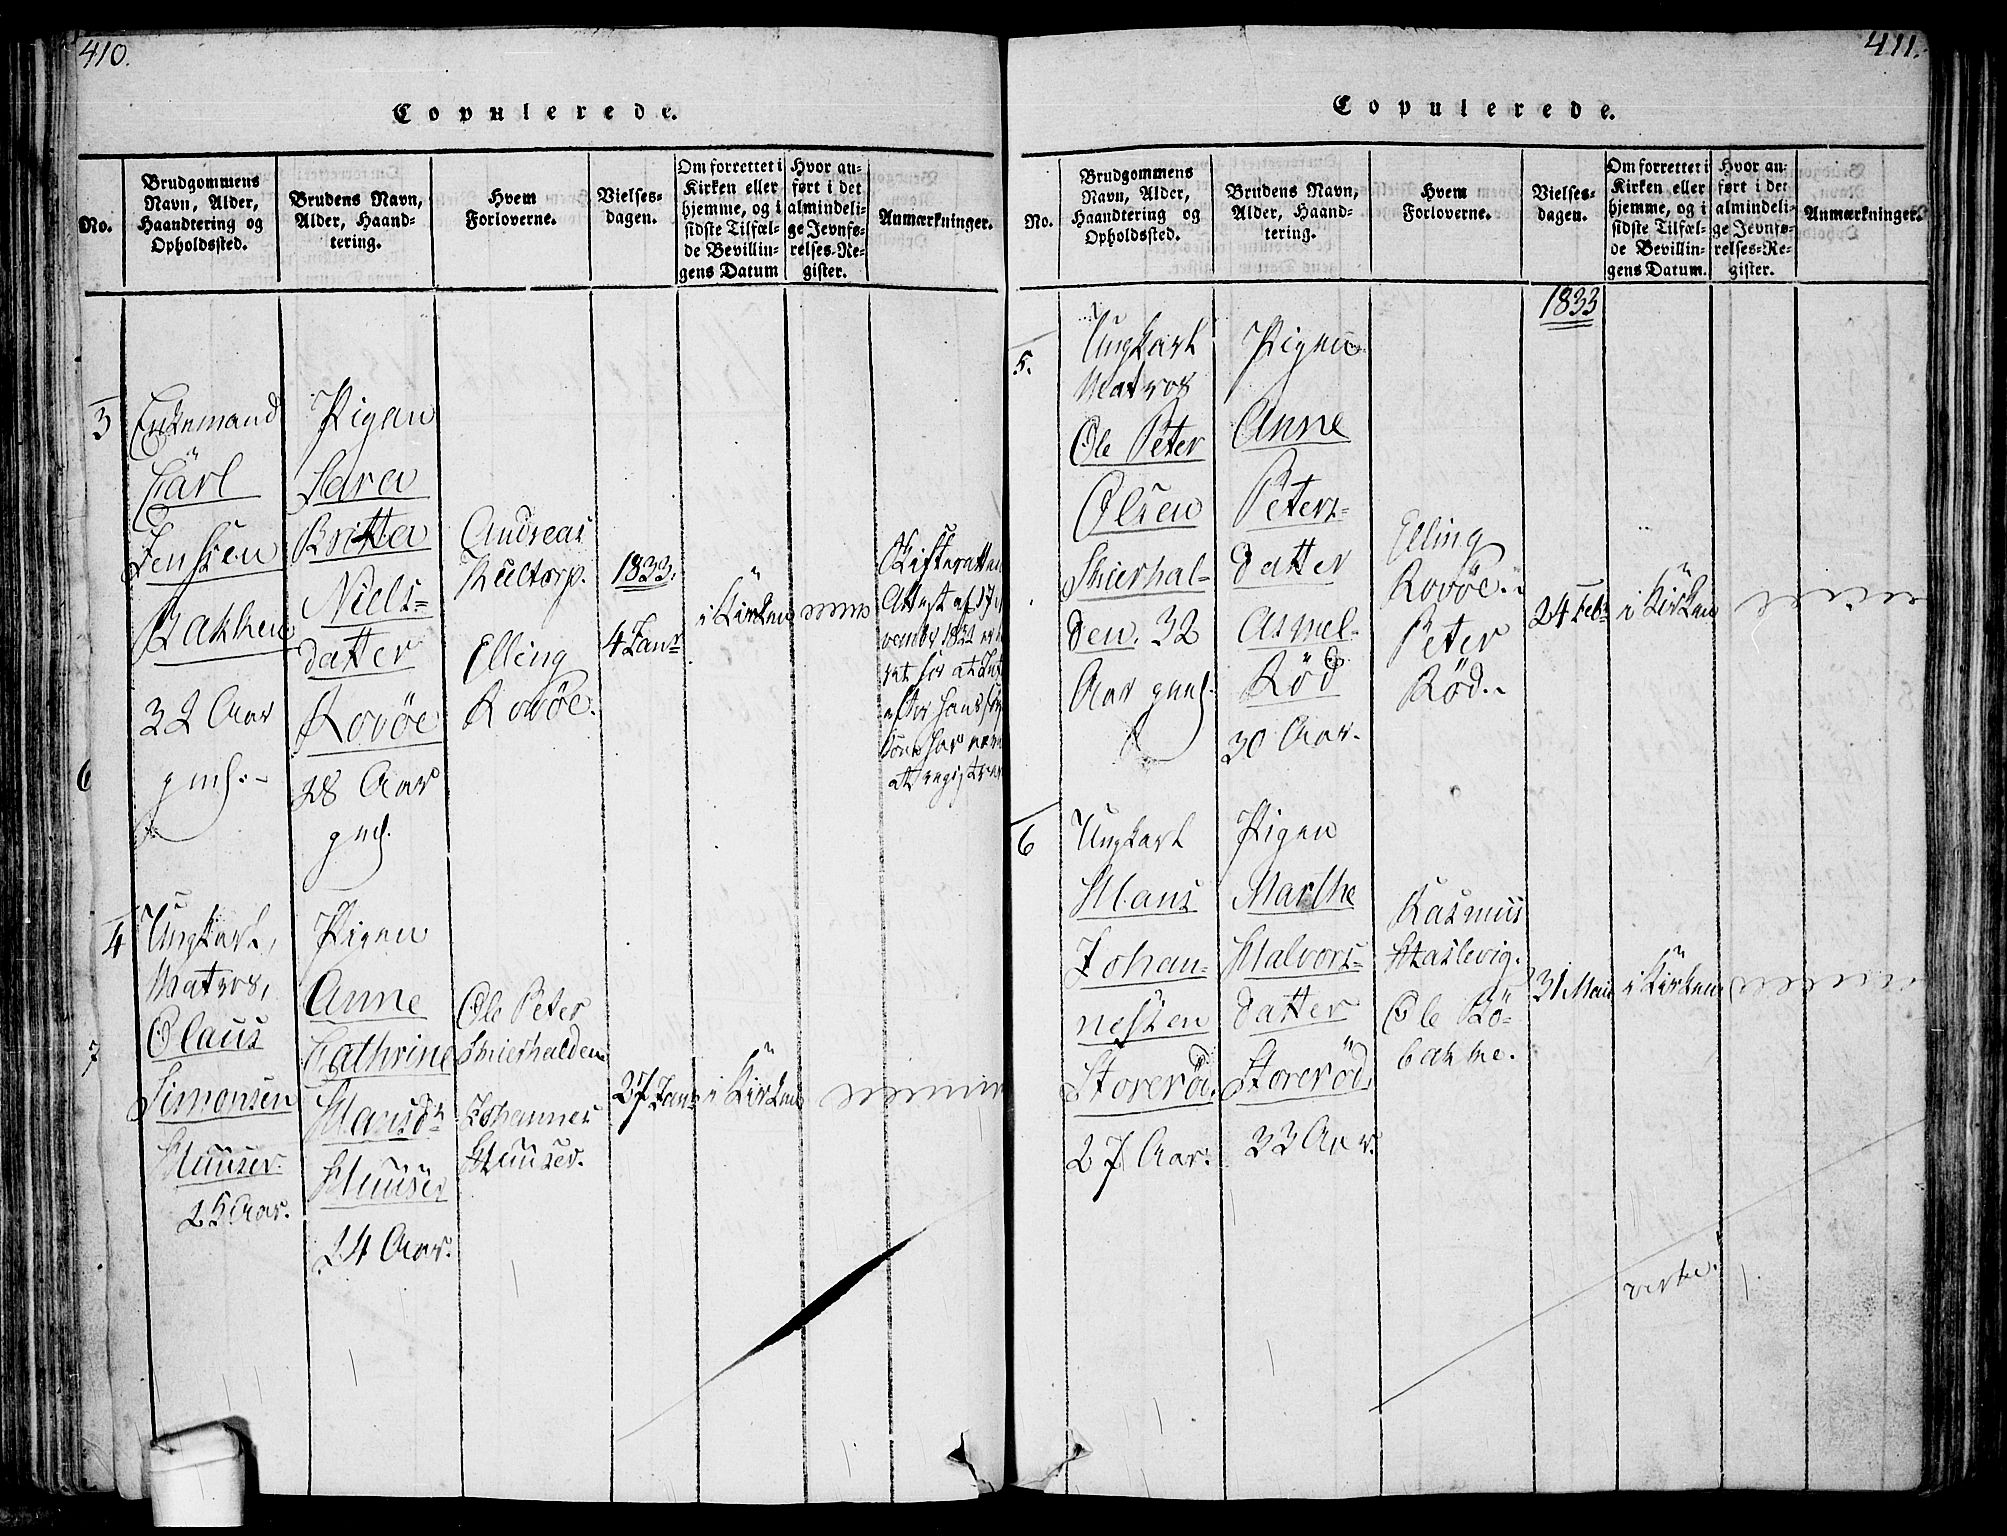 410.
Copulerede.
No.
Brudgommens
Navn, Alder,
Haandtering og
Opholdssted.
Brudens Navn,
Alder, Haand-
tering.
Hvem
Forloverne.
Vielses-
dagen.
Om forrettet i
Kirken eller
hjemme, og i
sidste Tilfæl-
de Bevillin-
gens Datum
Hvor an-
ført i det
almindeli-
ge Jevnfø-
relses-Re-
gister.
Anmærkninger.
3
Enkemand
Carl
Jensen
Bakken
32 Aar
gml.
Pigen
Sara
Britta
Niels-
datter
Rovöe
28 Aar
gml.
Andreas
Elling
Rovöe.
1833.
4 Janr
i Kirken
4
Ungkarl,
Matros,
Olaus
Simonsen
Huuser
25 Aar.
Pigen
Anne
Cathrine
Hansdr
Huuser
24 Aar.
Ole Peter
Skierhalden
Johannes
Huuser.
27 Janr
i Kirken
411.
Copulerede.
No.
Brudgommens
Navn, Alder,
Haandtering og
Opholdssted.
Brudens Navn,
Alder, Haand-
tering.
Hvem
Forloverne.
Vielses-
dagen.
Om forrettet i
Kirken eller
hjemme, og i
sidste Tilfæl-
de Bevillin-
gens Datum.
Hvor an-
ført i det
almindeli-
ge Jevnfø-
relses-Re-
gister.
Anmærkninger.
1833
5.
Ungkarl
Matros
Ole Peter
Olsen
Skierhal-
den. 32
Aar gml.
Pigen
Anne
Peters-
datter
Asmal-
Röd
30 Aar.
Elling
Rovöe.
Peter
Röd.
24 Febr
i Kirken
6
Ungkarl
Hans
Johan-
nessen
Storeröd.
27 Aar.
Pigen
Marthe
Halvors-
datter
Storeröd.
33 Aar.
Rasmus
Haslevig.
Ole Rö-
bakke.
31 Mai
i Kirken
verte!